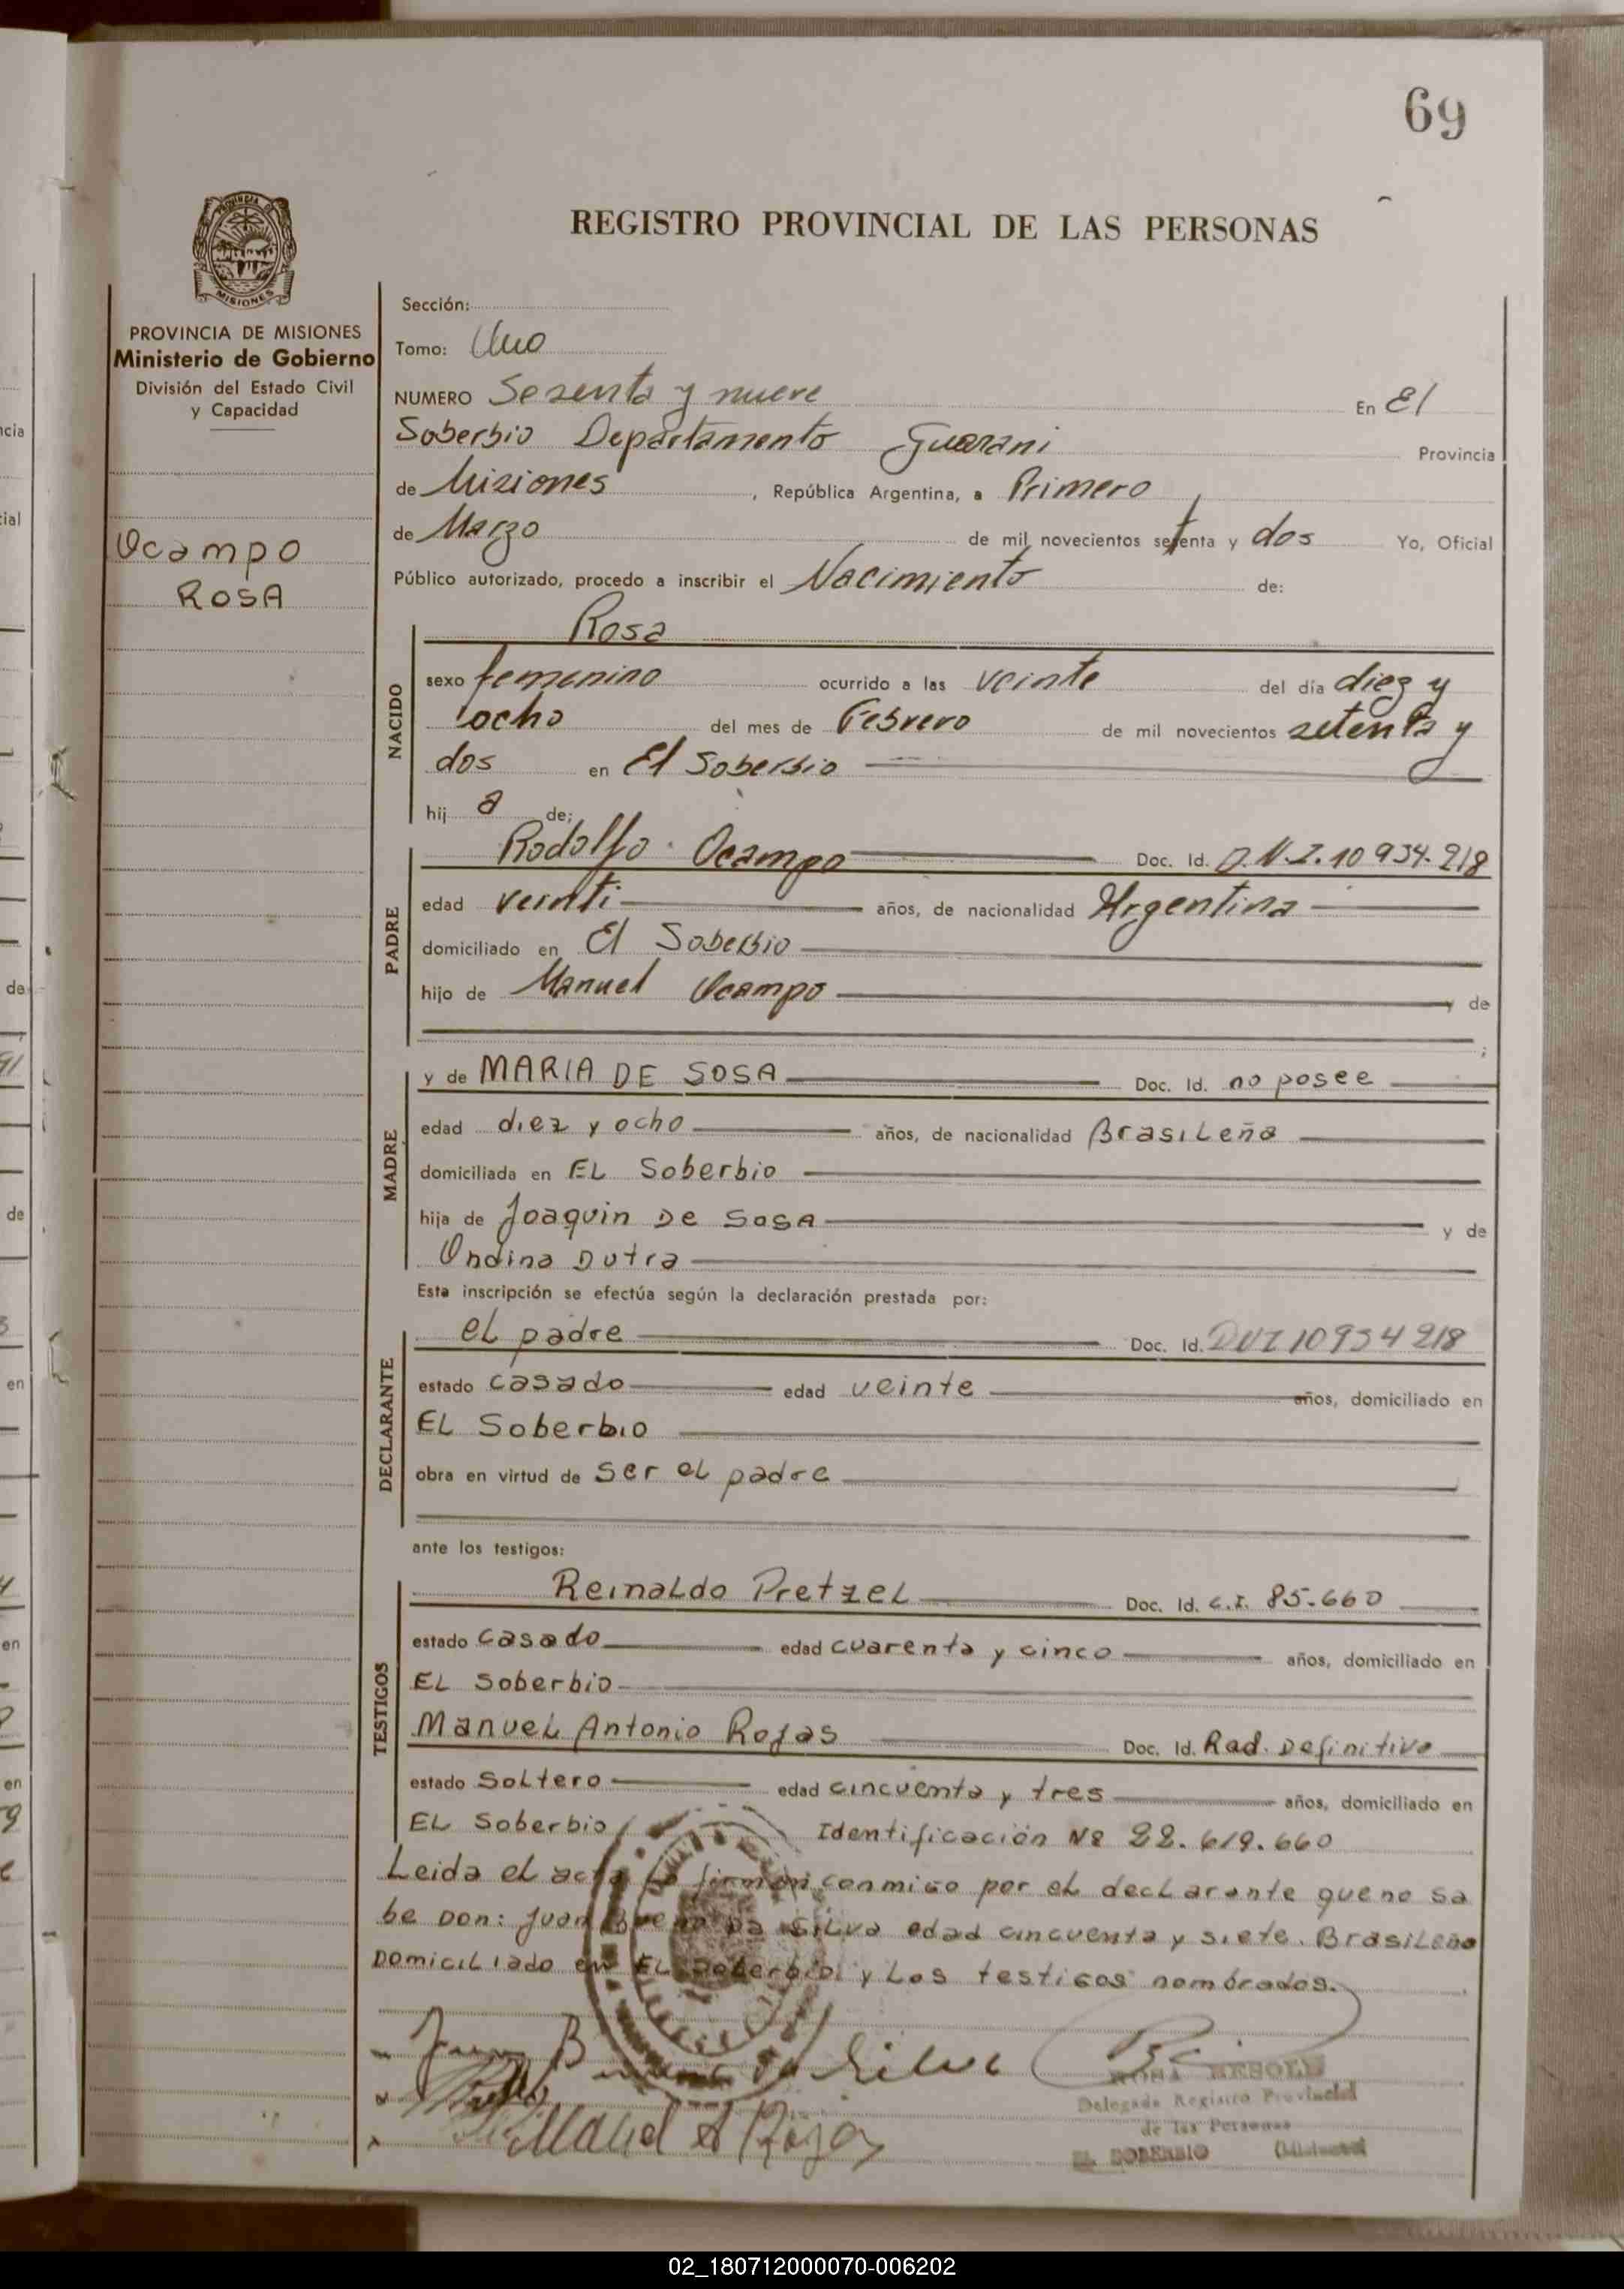 69
REGISTRO PROVINCIAL DE LAS PERSONAS
PROVINCIA DE MISIONES
Ministerio de Gobierno
División del Estado Civil
y Capacidad
Ocampo
ROSA
Sección:
Tomo: Uno
NUMERO Sesenta y nueve En El
Soberbio Departamento Guarani Provincia
de Misiones, República Argentina, a Primero
de Marzo de mil novecientos setenta y dos Yo, Oficial
Público autorizado, procedo a inscribir el Nacimiento de:
NACIDO
Rosa
sexo femenino ocurrido a las veinte del día diez y
ocho del mes de Febrero de mil novecientos setenta y
dos en El Soberbio
hij a de;
PADRE
Rodolfo Ocampo Doc. Id. D.N.I. 10 934.218
edad veinti años, de nacionalidad Argentina
domiciliado en El Soberbio
hijo de Manuel Ocampo y de
MADRE
y de MARIA DE SOSA Doc. Id. no posee
edad diez y ocho años, de nacionalidad Brasileña
domiciliada en EL Soberbio
hija de Joaquin De Sosa y de
Ondina Dutra
Esta inscripción se efectúa según la declaración prestada por:
DECLARANTE
el padre Doc. Id. DNI 10934218
estado casado edad veinte años, domiciliado en
EL Soberbio
obra en virtud de ser el padre
ante los testigos:
TESTIGOS
Reinaldo Pretzel Doc. Id. C.I. 85.660
estado casado edad cuarenta y cinco años, domiciliado en
EL Soberbio
Manuel Antonio Rojas Doc. Id. Rad. Definitivo
estado Soltero edad cincuenta y tres años, domiciliado en
EL Soberbio Identificación Nº 22.619.660
Leida el acta la firman conmigo por el declarante que no sa
be Don: Juan Bueno Da Silva edad cincuenta y siete. Brasileño
Domiciliado en EL Soberbio y Los testigos nombrados.
Juan B Da Silva
Manuel A Rojas
ROSA
Delegada Registro Provincial
de las Personas
EL SOBERBIO (Misiones)
02_180712000070-006202